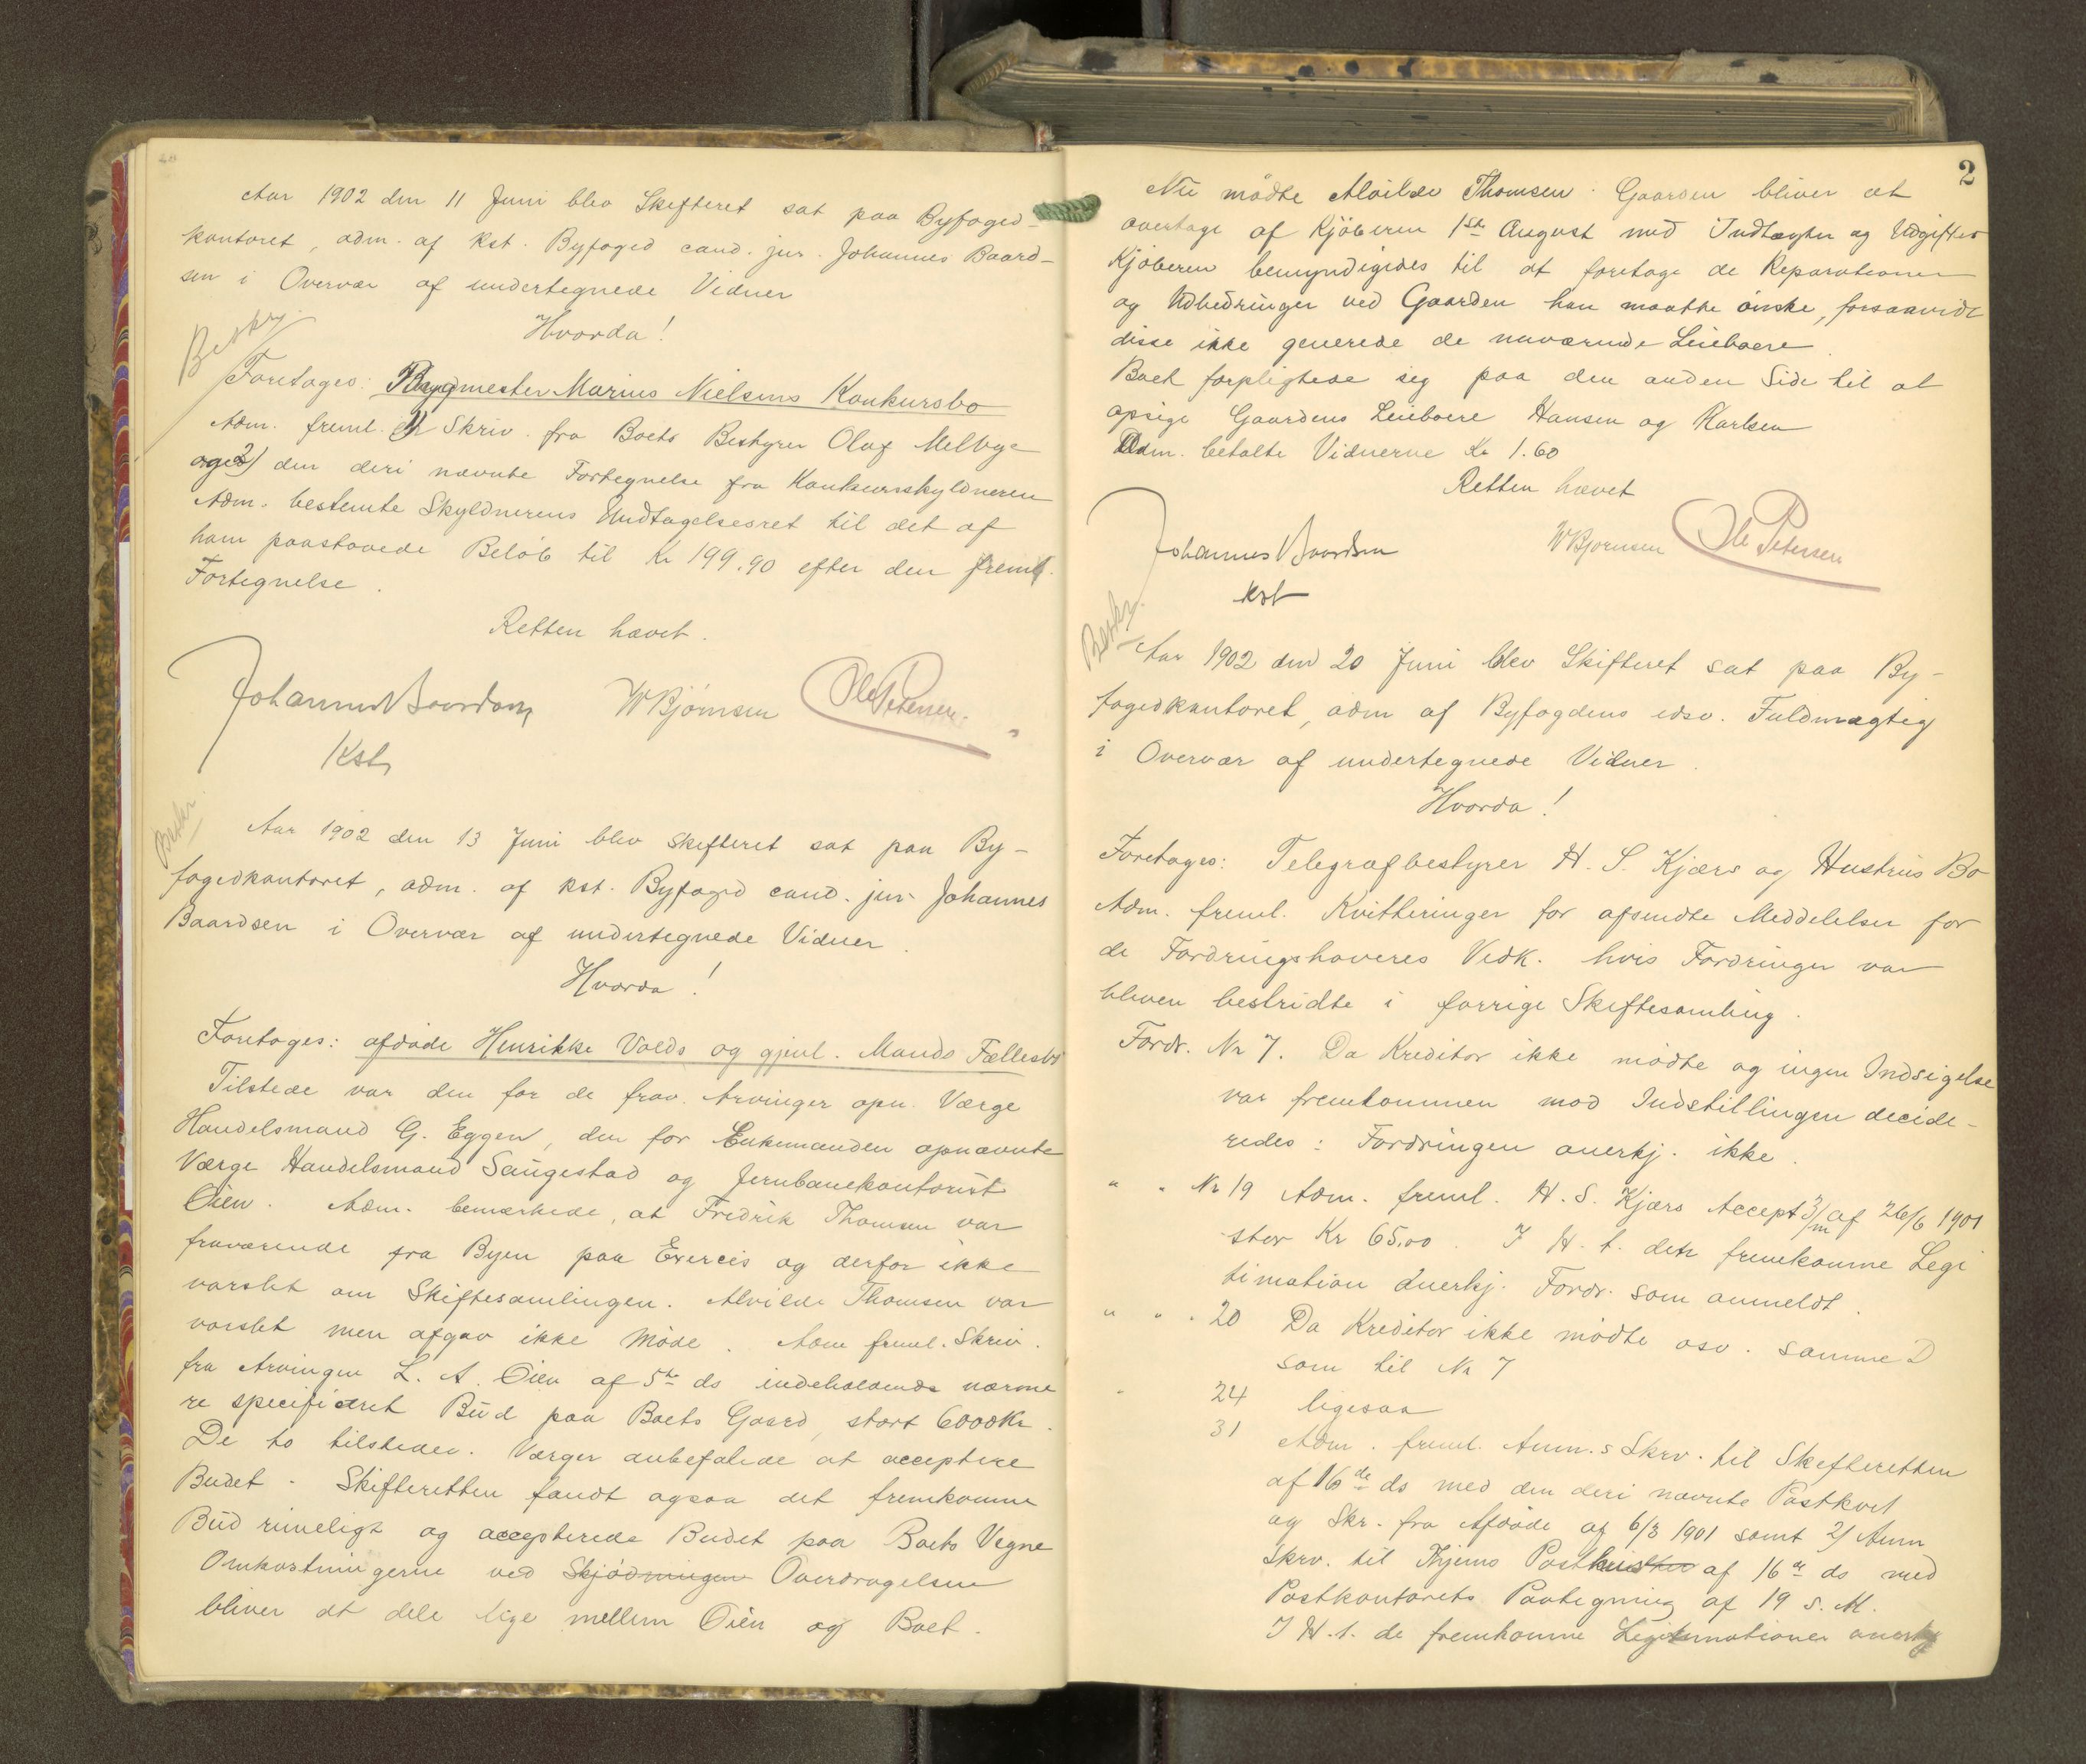 Aar 1902 den 11 Juni blev Skifteret sat paa Byfoged-
kontoret, adm. af kst. Byfoged cand. jur. Johannes Baard-
sen i Overvær af undertegnede Vidner
Hvorda!
Beskr.
Foretoges: Bygmester Marius Nielsens Konkursbo
Adm. freml. 1) Skriv. fra Boets Bestyrer Olaf Melbye
og 2) den deri nævnte Fortegnelse fra Konkursskyldneren
Adm. bestemte Skyldnerens Undtagelsesret til det af
ham paastaaede Beløb til Kr 199.90 efter den freml.
Fortegnelse.
Retten hævet.
Johannes Baardsen W Bjørnsen Ole Petersen
Kst
Beskr.
Aar 1902 den 13 Juni blev Skifteret sat paa By-
fogedkontoret, adm. af kst. Byfoged cand. jur. Johannes
Baardsen i Overvær af undertegnede Vidner.
Hvorda!
Foretoges: afdøde Henrikke Volds og gjenl. Mands Fællesbo
Tilstede var den for de frav. Arvinger opn. Værge
Handelsmand G. Eggen, den for Enkemanden opnævnte
Værge Handelsmand Saugestad og Jernbanekontorist
Øien. Adm. bemærkede, at Fredrik Thomsen var
fraværende fra Byen paa Exercis og derfor ikke
varslet om Skiftesamlingen. Alvilde Thomsen var
varslet men afgav ikke Møde. Adm freml. Skriv.
fra Arvingen L. A. Øien af 5te ds indeholdende nærme
re specificeret Bud paa Boets Gaard, stort 6000 Kr.
De to tilstedev. Værger anbefalede at acceptere
Budet. Skifteretten fandt ogsaa det fremkomne
Bud rimeligt og accepterede Budet paa Boets Vegne
Omkostningerne ved Skjødningen Overdragelsen
bliver at dele lige mellem Øien og Boet.
2
Nu mødte Alvilde Thomsen. Gaarden bliver at
overtage af Kjøberen 1ste August med Indtægter og Udgifter
Kjøberen bemyndigedes til at foretage de Reparationer
og Udbedringer ved Gaarden han maatte ønske, forsaavidt
disse ikke generede de nuværende Leieboere.
Boet forpligtede sig paa den anden Side til at
opsige Gaardens Leieboere Hansen og Karlsen
Adm. betalte Vidnerne Kr 1.60
Retten hævet
Johannes Baardsen W Bjørnsen Ole Petersen
kst
Beskr.
Aar 1902 den 20 Juni blev Skifteret sat paa By-
fogedkontoret, adm af Byfogdens edsv. Fuldmægtig
i Overvær af undertegnede Vidner.
Hvorda!
Foretoges: Telegrafbestyrer H. S. Kjærs og Hustrus Bo
Adm. freml. Kvitteringer for afsendte Meddelelser for
de Fordringshaveres Vedk. hvis Fordringer var
bleven bestridte i forrige Skiftesamling.
Fordr. Nr 7. Da Kreditor ikke mødte og ingen Indsigelse
var fremkommen mod Indstillingen decide-
redes: Fordringen anerkj. ikke.
" " Nr 19 Adm. freml. H. S. Kjærs Accept 3/m af 26/6 1901
stor Kr 65.00. I H. t. den fremkomne Legi
timation anerkj. Fordr. som anmeldt.
" " " 20 Da Kreditor ikke mødte osv. samme D
som til Nr 7
" 24 ligesaa
31 Adm. freml. Anm.s Skrv. til Skifteretten
af 16de ds med den deri nævnte Postkvit
og Skr. fra Afdøde af 6/3 1901 samt 2) Anm
Skrv. til Hjems Postkvister af 16de ds med
Postkontorets Paategning af 19 s. M.
I H. t. de fremkomne Legitimationer anerkj